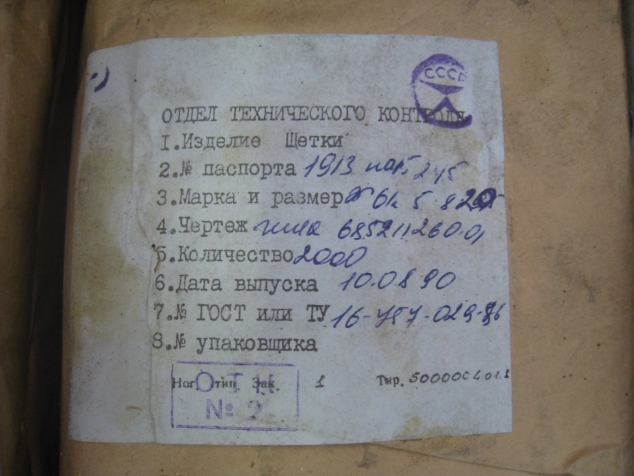 СССР
ОТДЕЛ ТЕХНИЧЕСКОГО КОНТРОЛЯ
1.Изделие Щетки
2.№ паспорта 1913 245
3.Марка и размер 5 8
4.Чертеж
5.Количество 2000
6.Дата выпуска 10.08.90
7.№ ГОСТ или ТУ 16-757-029-86
8.№ упаковщика
Ног. тип. Зак. 1 Тир.
ОТК
№ 2